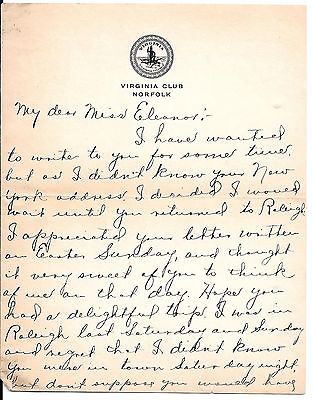 VIRGINIA
VIRGINIA CLUB
NORFOLK
My dear Miss Eleanor:-
I have wanted
to write to you for some time,
but as I didn't know your New
York address, I decided I would
wait until you returned to Raleigh.
I appreciated your letter written
on Easter Sunday, and thought
it very sweet of you to think
of me on that day. Hope you
had a delightful trip. I was in
Raleigh last Saturday and Sunday
and regret that I didn't know
you were in town Saturday night,
but don't suppose you would have